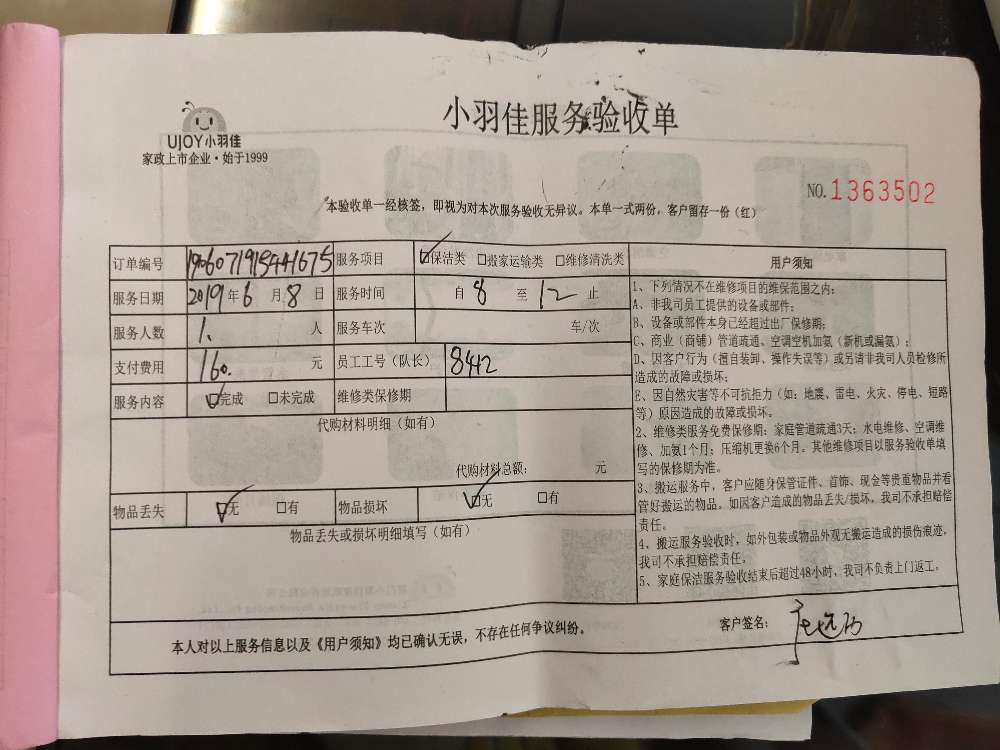 小羽佳服务验收单
UJOY小羽佳
家政上市企业·始于1999
NO.1363502
本验收单一经核签，即视为对本次服务验收无异议。本单一式两份，客户留存一份（红）
订单编号 服务项目 ☑保洁类 □搬家运输类 □维修清洗类
服务日期 2019年6月8日 服务时间 自8至12止
服务人数 1.人 服务车次 车/次
支付费用 160.元 员工工号（队长） 8442
服务内容 ☑完成 □未完成 维修类保修期
代购材料明细（如有）
代购材料总额： 元
物品丢失 ☑无 □有 物品损坏 ☑无 □有
物品丢失或损坏明细填写（如有）
用户须知
1、下列情况不在维修项目的维保范围之内：
A、非我司员工提供的设备或部件；
B、设备或部件本身已经超过出厂保修期；
C、商业（商铺）管道疏通、空调空机加氨（新机或漏氨）；
D、因客户行为（擅自装卸、操作失误等）或另请非我司人员检修所
造成的故障或损坏；
E、因自然灾害等不可抗拒力（如：地震、雷电、火灾、停电、短路
等）原因造成的故障或损坏。
2、维修类服务免费保修期：家庭管道疏通3天；水电维修、空调维
修、加氨1个月；压缩机更换6个月。其他维修项目以服务验收单填
写的保修期为准。
3、搬运服务中，客户应随身保管证件、首饰、现金等贵重物品并看
管好搬运的物品。如因客户造成的物品丢失/损坏，我司不承担赔偿
责任。
4、搬运服务验收时，如外包装或物品外观无搬运造成的损伤痕迹，
我司不承担赔偿责任。
5、家庭保洁服务验收结束后超过48小时，我司不负责上门返工。
本人对以上服务信息以及《用户须知》均已确认无误，不存在任何争议纠纷。 客户签名：